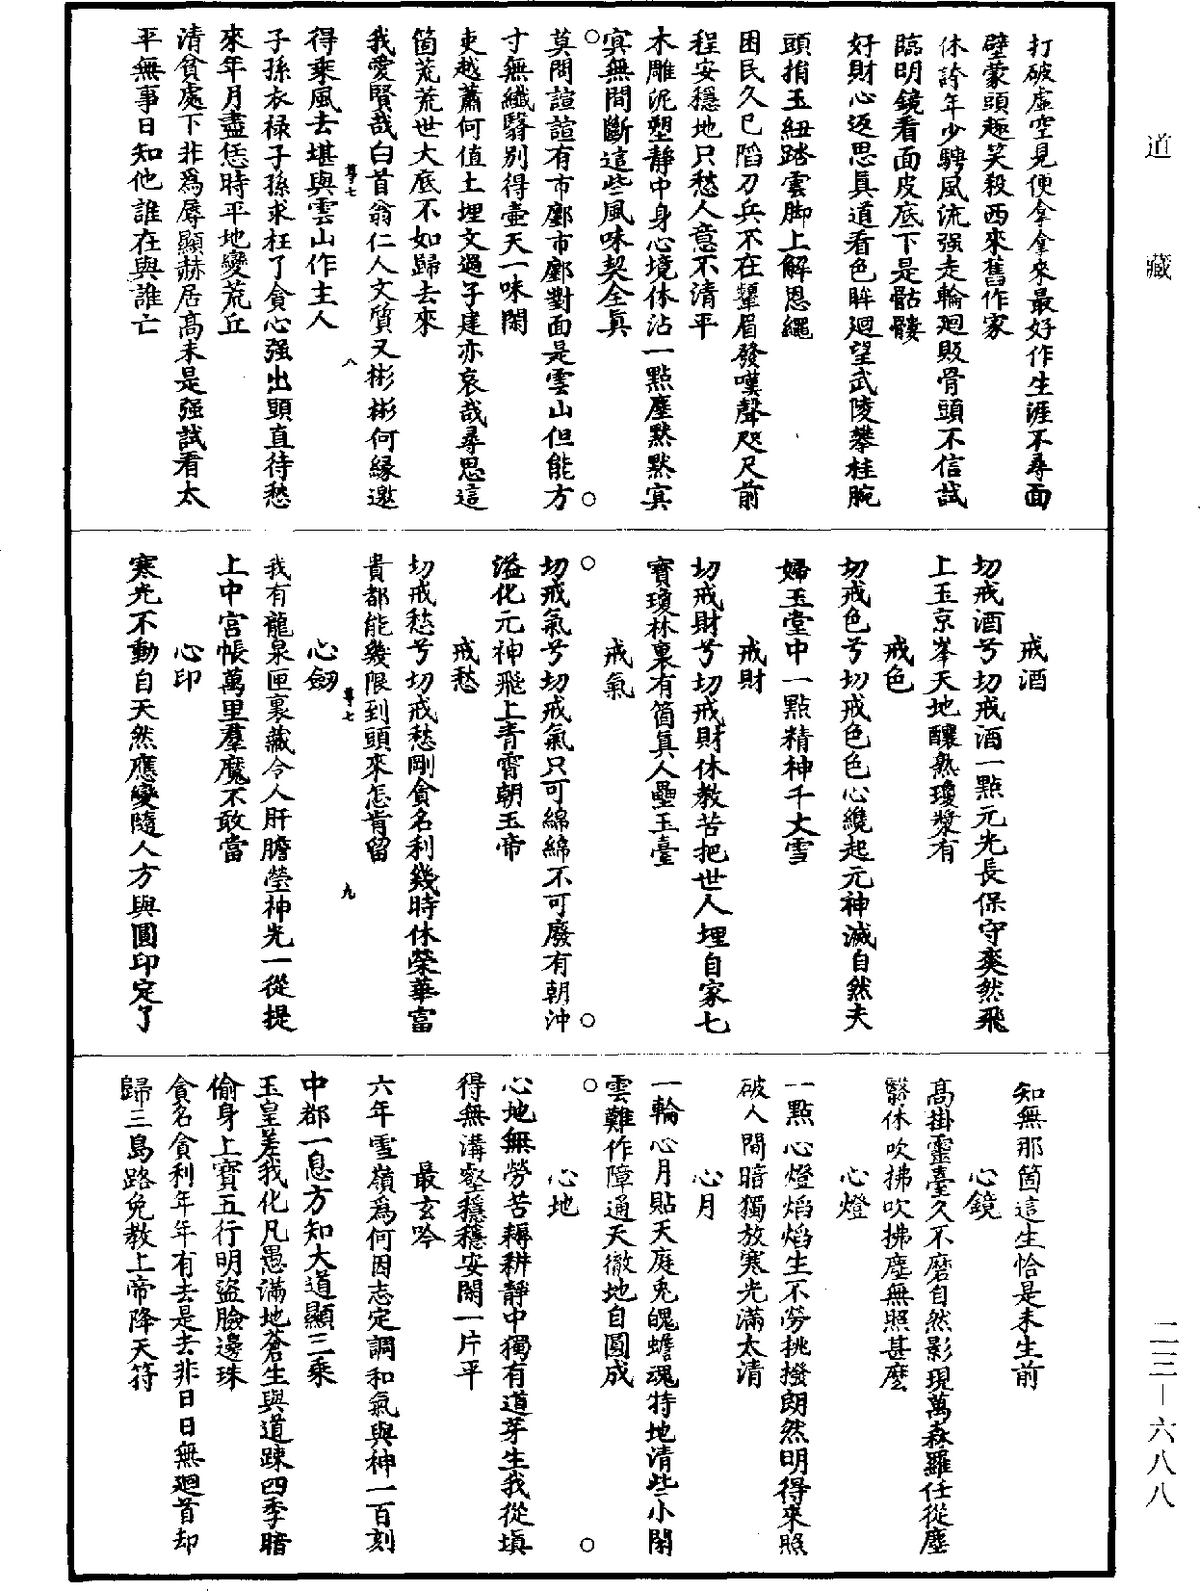 道藏
打破虛空見便拿拿來最好作生涯不尋面
壁蒙頭趣笑殺西來舊作家
休誇年少騁風流强走輪廻販骨頭不信試
臨明鏡看面皮底下是骷髏
好財心返思眞道看色眸廻望武陵攀桂腕
頭捎玉紐踏雲脚上解恩繩
困民久已陷刀兵不在顰眉發嘆聲咫尺前
程安穩地只愁人意不清平
木雕泥塑靜中身心境休沾一點塵默默寞
寞無間斷這些風味契全眞
莫問諠諠有市鄽市鄽對面是雲山但能方
寸無纖翳別得壺天一味閑
吏越蕭何值土埋文過子建亦哀哉尋思這
箇荒荒世大底不如歸去來
我愛賢哉白首翁仁人文質又彬彬何緣邀
尊七
八
得乘風去堪與雲山作主人
子孫衣祿子孫求枉了貪心强出頭直待愁
來年月盡恁時平地變荒丘
清貧處下非爲辱顯赫居高未是强試看太
平無事日知他誰在與誰亡
戒酒
切戒酒兮切戒酒一點元光長保守奕然飛
上玉京峯天地釀熟瓊漿有
戒色
切戒色兮切戒色色心纔起元神滅自然夫
婦玉堂中一點精神千丈雪
戒財
切戒財兮切戒財休教苦把世人埋自家七
寶瓊林裏有箇眞人壘玉臺
戒氣
切戒氣兮切戒氣只可綿綿不可廢有朝沖
溢化元神飛上青霄朝玉帝
戒愁
切戒愁兮切戒愁剛貪名利幾時休榮華富
貴都能幾限到頭來怎肯留
尊七
九
心劒
我有龍泉匣裏藏令人肝膽瑩神光一從提
上中宮帳萬里羣魔不敢當
心印
寒光不動自天然應變隨人方與圓印定了
知無那箇這生恰是未生前
心鏡
高掛靈臺久不磨自然影現萬森羅任從塵
翳休吹拂吹拂塵無照甚麽
心燈
一點心燈焰焰生不勞挑撥朗然明得來照
破人間暗獨放寒光滿太清
心月
一輪心月貼天庭兎魄蟾魂特地清些小閑
雲難作障通天徹地自圓成
心地
心地無勞苦耨耕靜中獨有道芽生我從塡
得無溝壑穩穩安閑一片平
最玄吟
六年雪嶺爲何因志定調和氣與神一百刻
中都一息方知大道顯三乘
玉皇差我化凡愚滿地蒼生與道踈四季暗
偷身上寶五行明盜臉邊珠
貪名貪利年年有去是去非日日無廻首却
歸三島路免教上帝降天符
二三—六八八